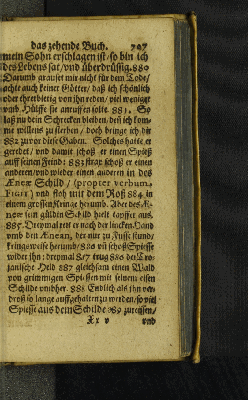 das zehende Buch. 707
mein Sohn erschlagen ist/ so bin ich
des Lebens sat/ und überdrüssig. 880
Darumb grauset mir nicht für dem Tode/
achte auch keiner Götter/ daß ich schönlich
oder ehrerbietig von ihn reden/ viel weniger
umb Hülffe sie anruffen solte. 881. So
laß nu dein Schrecken bleiben/ deñ ich kom-
me willens zu sterben/ doch bringe ich dir
882 zuvor diese Gaben. Solches hatte er
geredet/ und damit schoß er einen Spieß
auff seinen Feind: 883 strax schoß er einen
anderen/ und wieder einen anderen in des
Æneæ Schild/ (propter verbum,
Figit) und floh mit dem Roß 884 in
einem grossen Kringe herumb. Aber des Æ-
neæ sein gülden Schild hielt tapffer aus.
885. Dreymal reit er nach der lincken Hand
umb den Ænean, der nur zu Fusse stund/
kringsweise herumb/ 886 uñ schoß Spiesse
wider ihn: dreymal 887 trug 886 der Tro-
janische Held 887 gleichsam einen Wald
von grimmigen Spiessen mit seinem eisen
Schilde umbher. 888 Endlich als ihn ver-
dreust so lange auffgehalten zu werden/ so viel
Spiesse aus dem Schilde 889 zureissen/
Xx v und